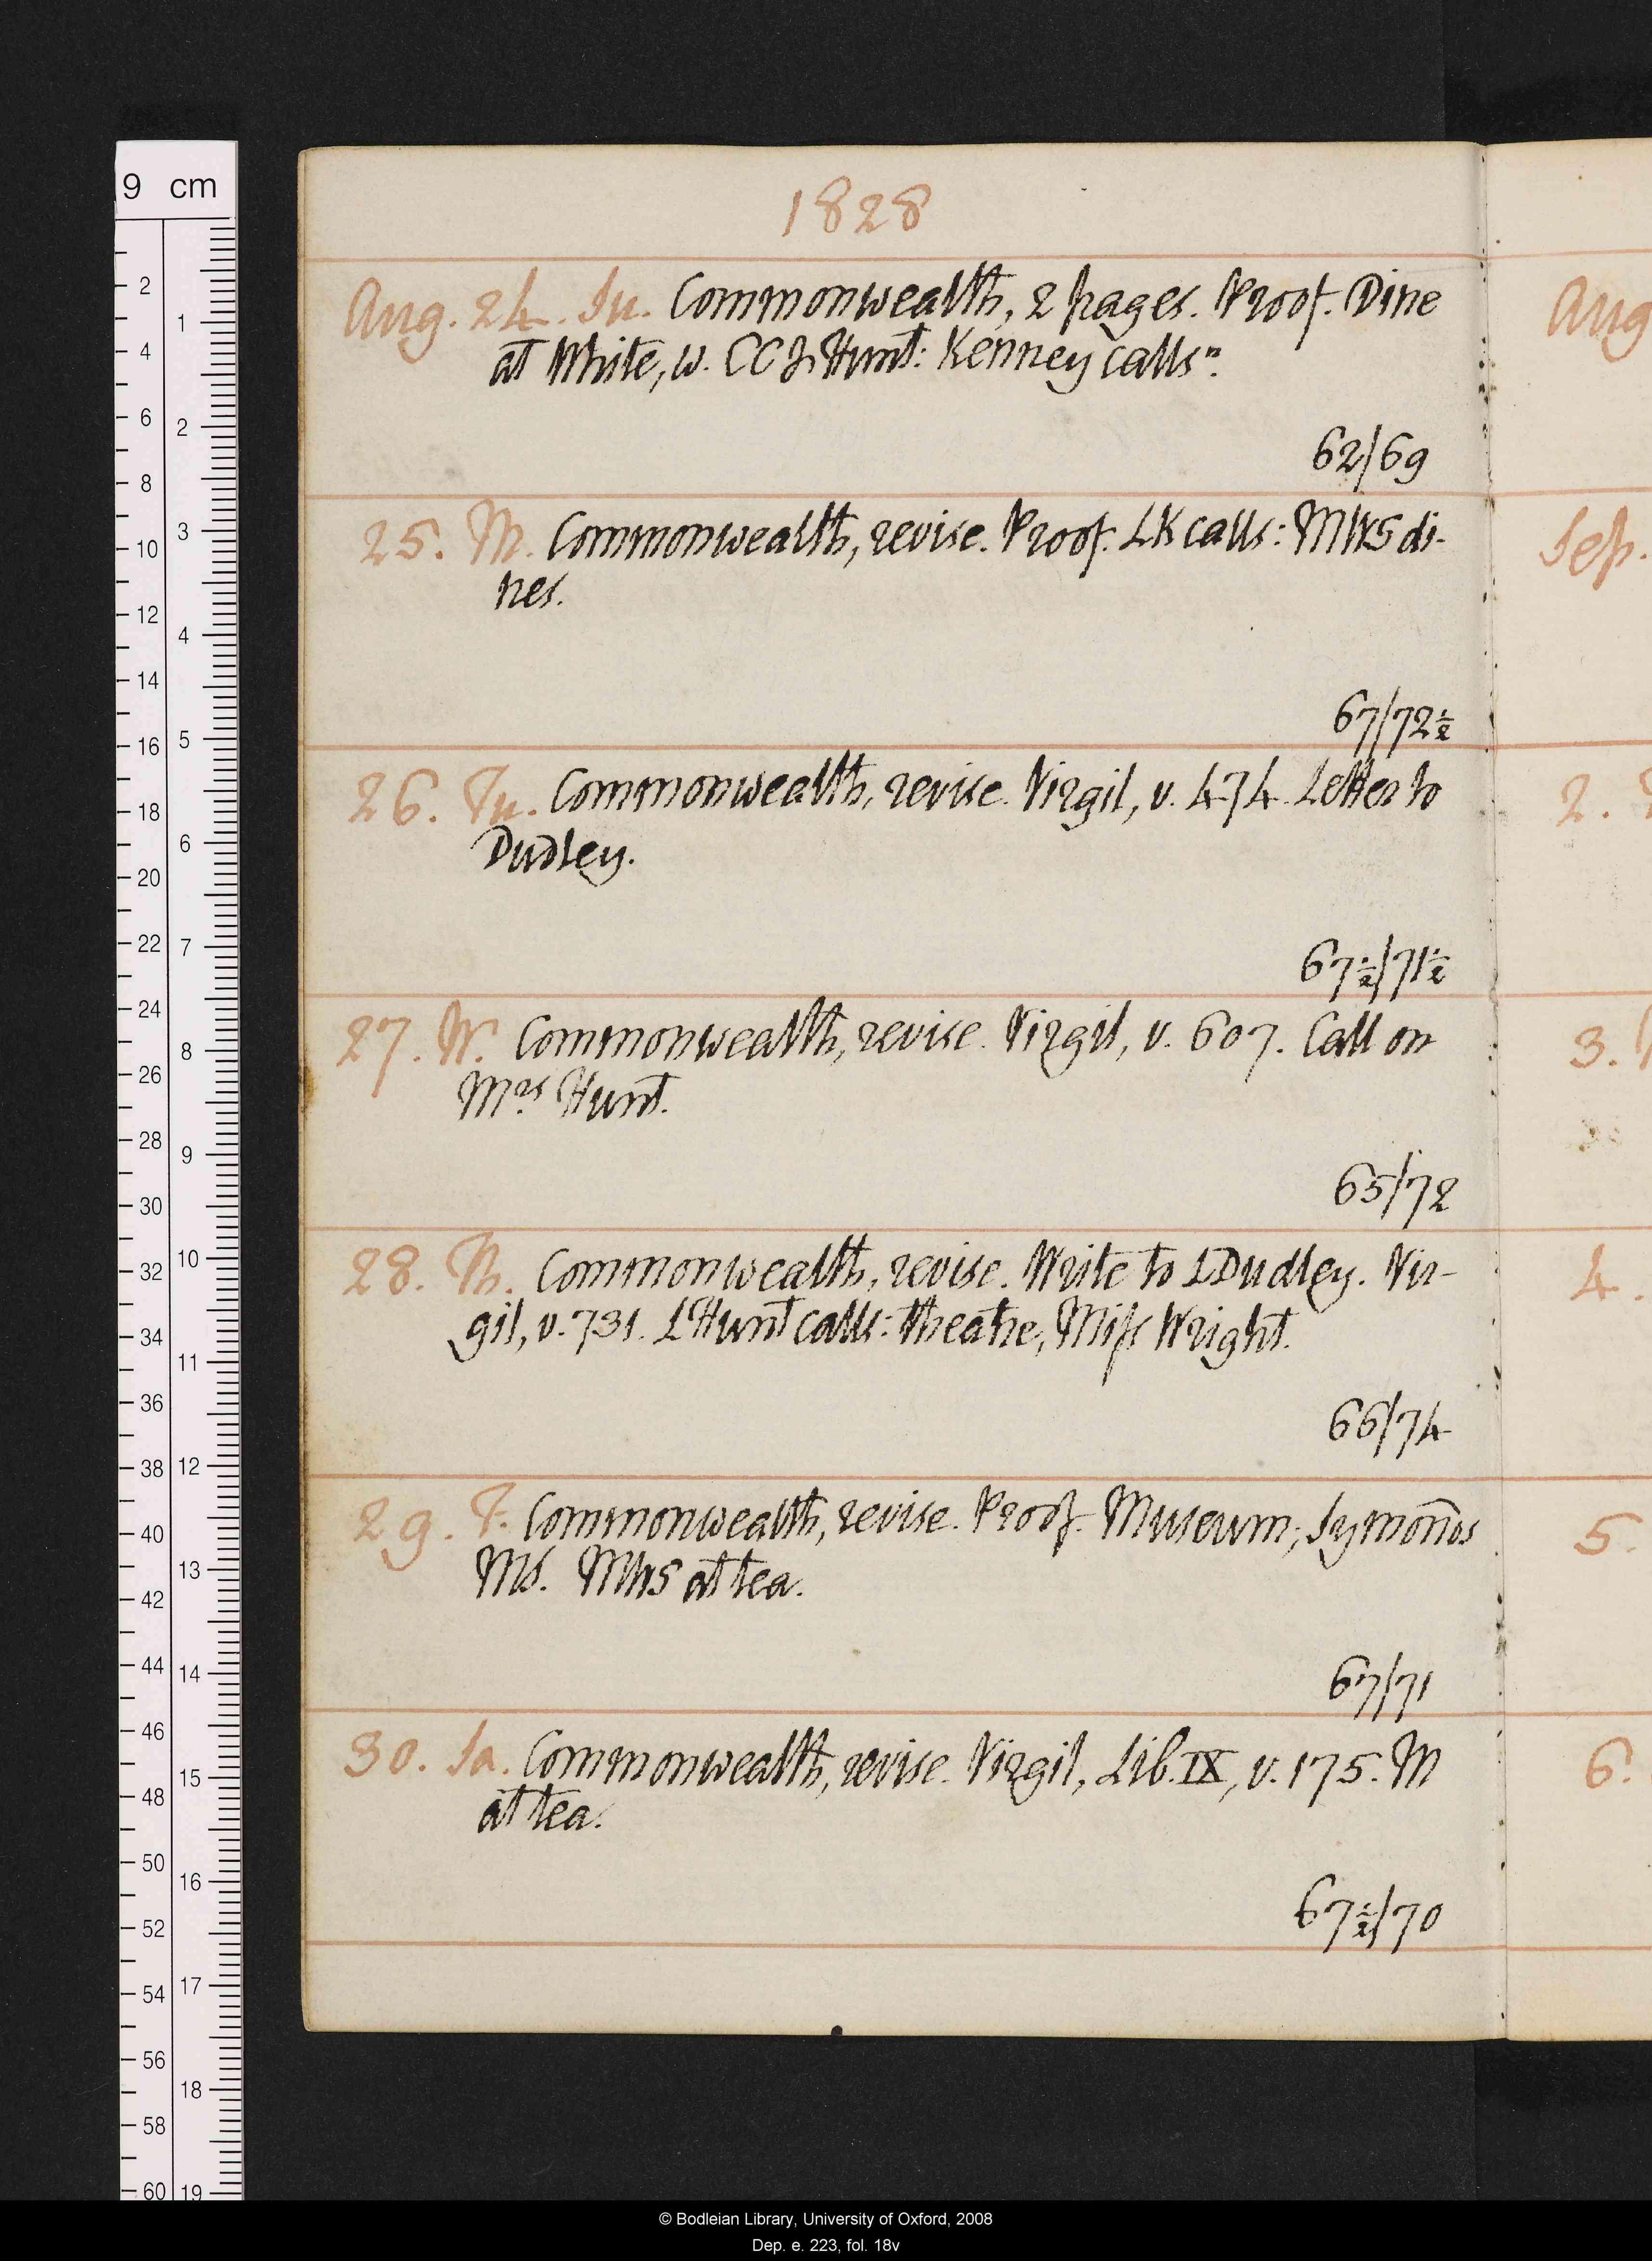 9 cm
1828
Aug. 24. Su. Commonwealth, 2 pages. Proof. Dine
at White, w. CC & Hunt: Kenney calls n.
62/69
25. M. Commonwealth, revise. Proof. LK calls: MWS di-
nes.
67/72½
26. Tu. Commonwealth, revise. Virgil, v. 474. Letter to
Dudley.
67½/71½
27. W. Commonwealth, revise. Virgil, v. 607. Call on
Mrs Hunt.
65/72
28. Th. Commonwealth, revise. Write to LDudley. Vir-
gil, v. 731. LHunt calls: theatre, Miss Wright.
66/74
29. F. Commonwealth, revise. Proof. Museum; Symonds
MS. MWS at tea.
67/71
30. Sa. Commonwealth, revise. Virgil, Lib. IX, v. 175. M
at tea.
67½/70
Aug
Sep.
2.
3.
4.
5.
6.
© Bodleian Library, University of Oxford, 2008
Dep. e. 223, fol. 18v